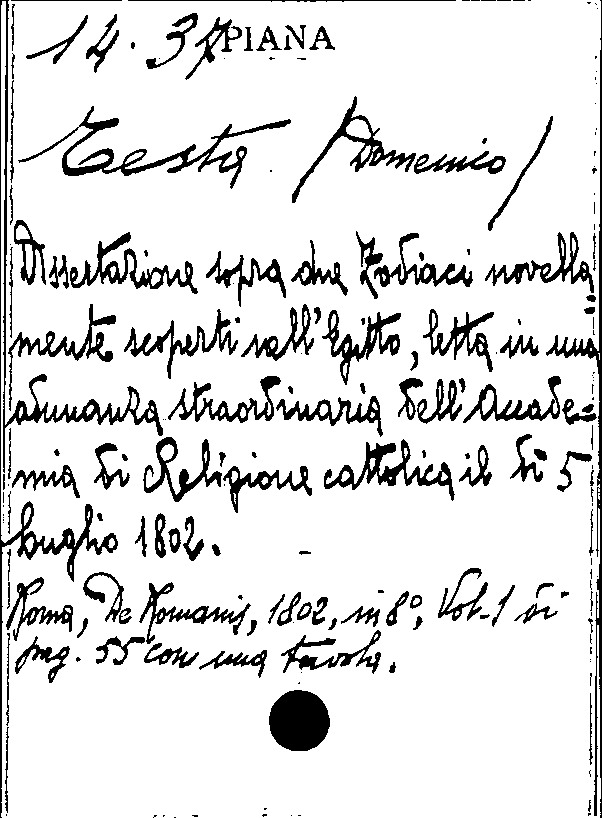 14.37 PIANA
Testa (Domenico)
Dissertazione sopra due Zodiaci novella=
mente scoperti nell'Egitto, letta in una
adunanza straordinaria dell'Accade=
mia di Religione cattolica il dì 5
Luglio 1802.
Roma, De Romanis, 1802, in 8°, Vol. 1 di
pag. 55 con una tavola.